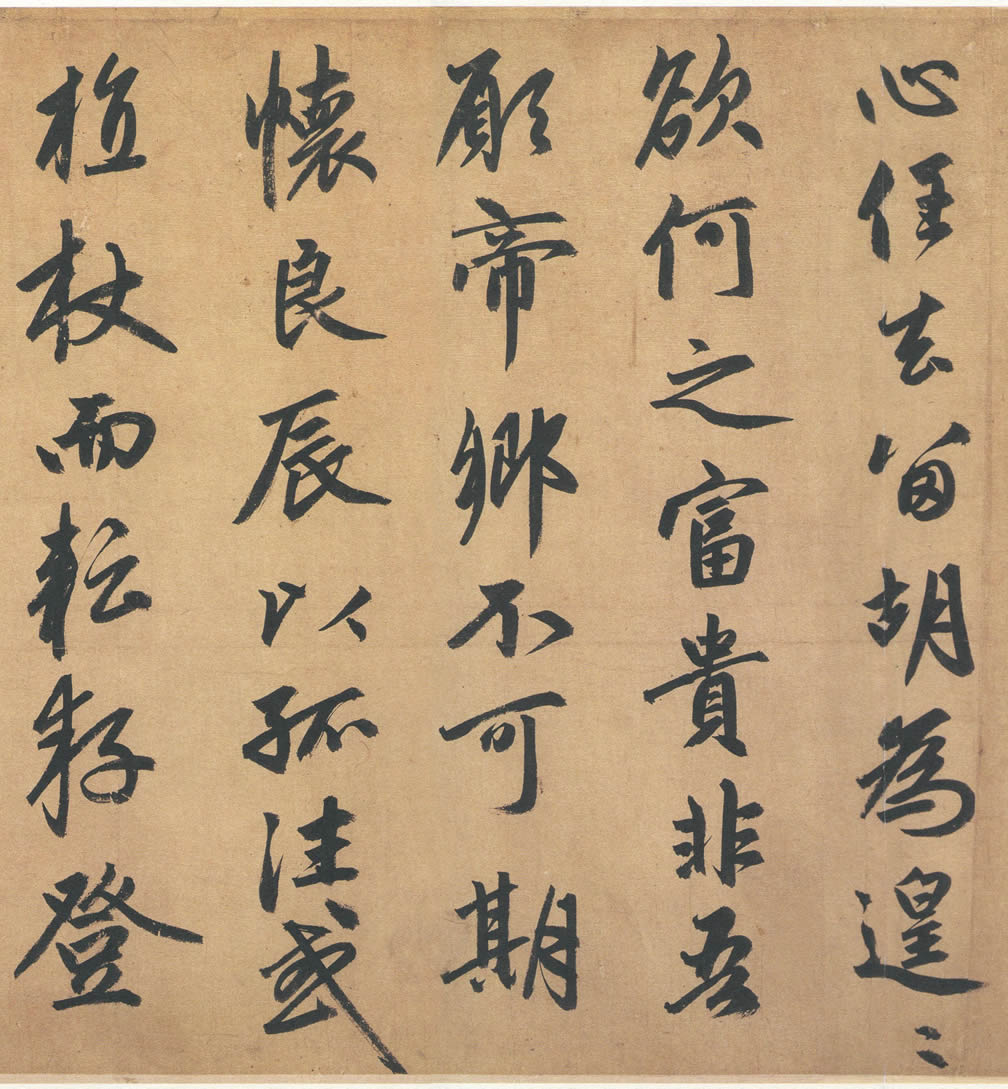 心任去留胡為遑〻
欲何之富貴非吾
願帝鄉不可期
懷良辰以孤往或
植杖而耘耔登